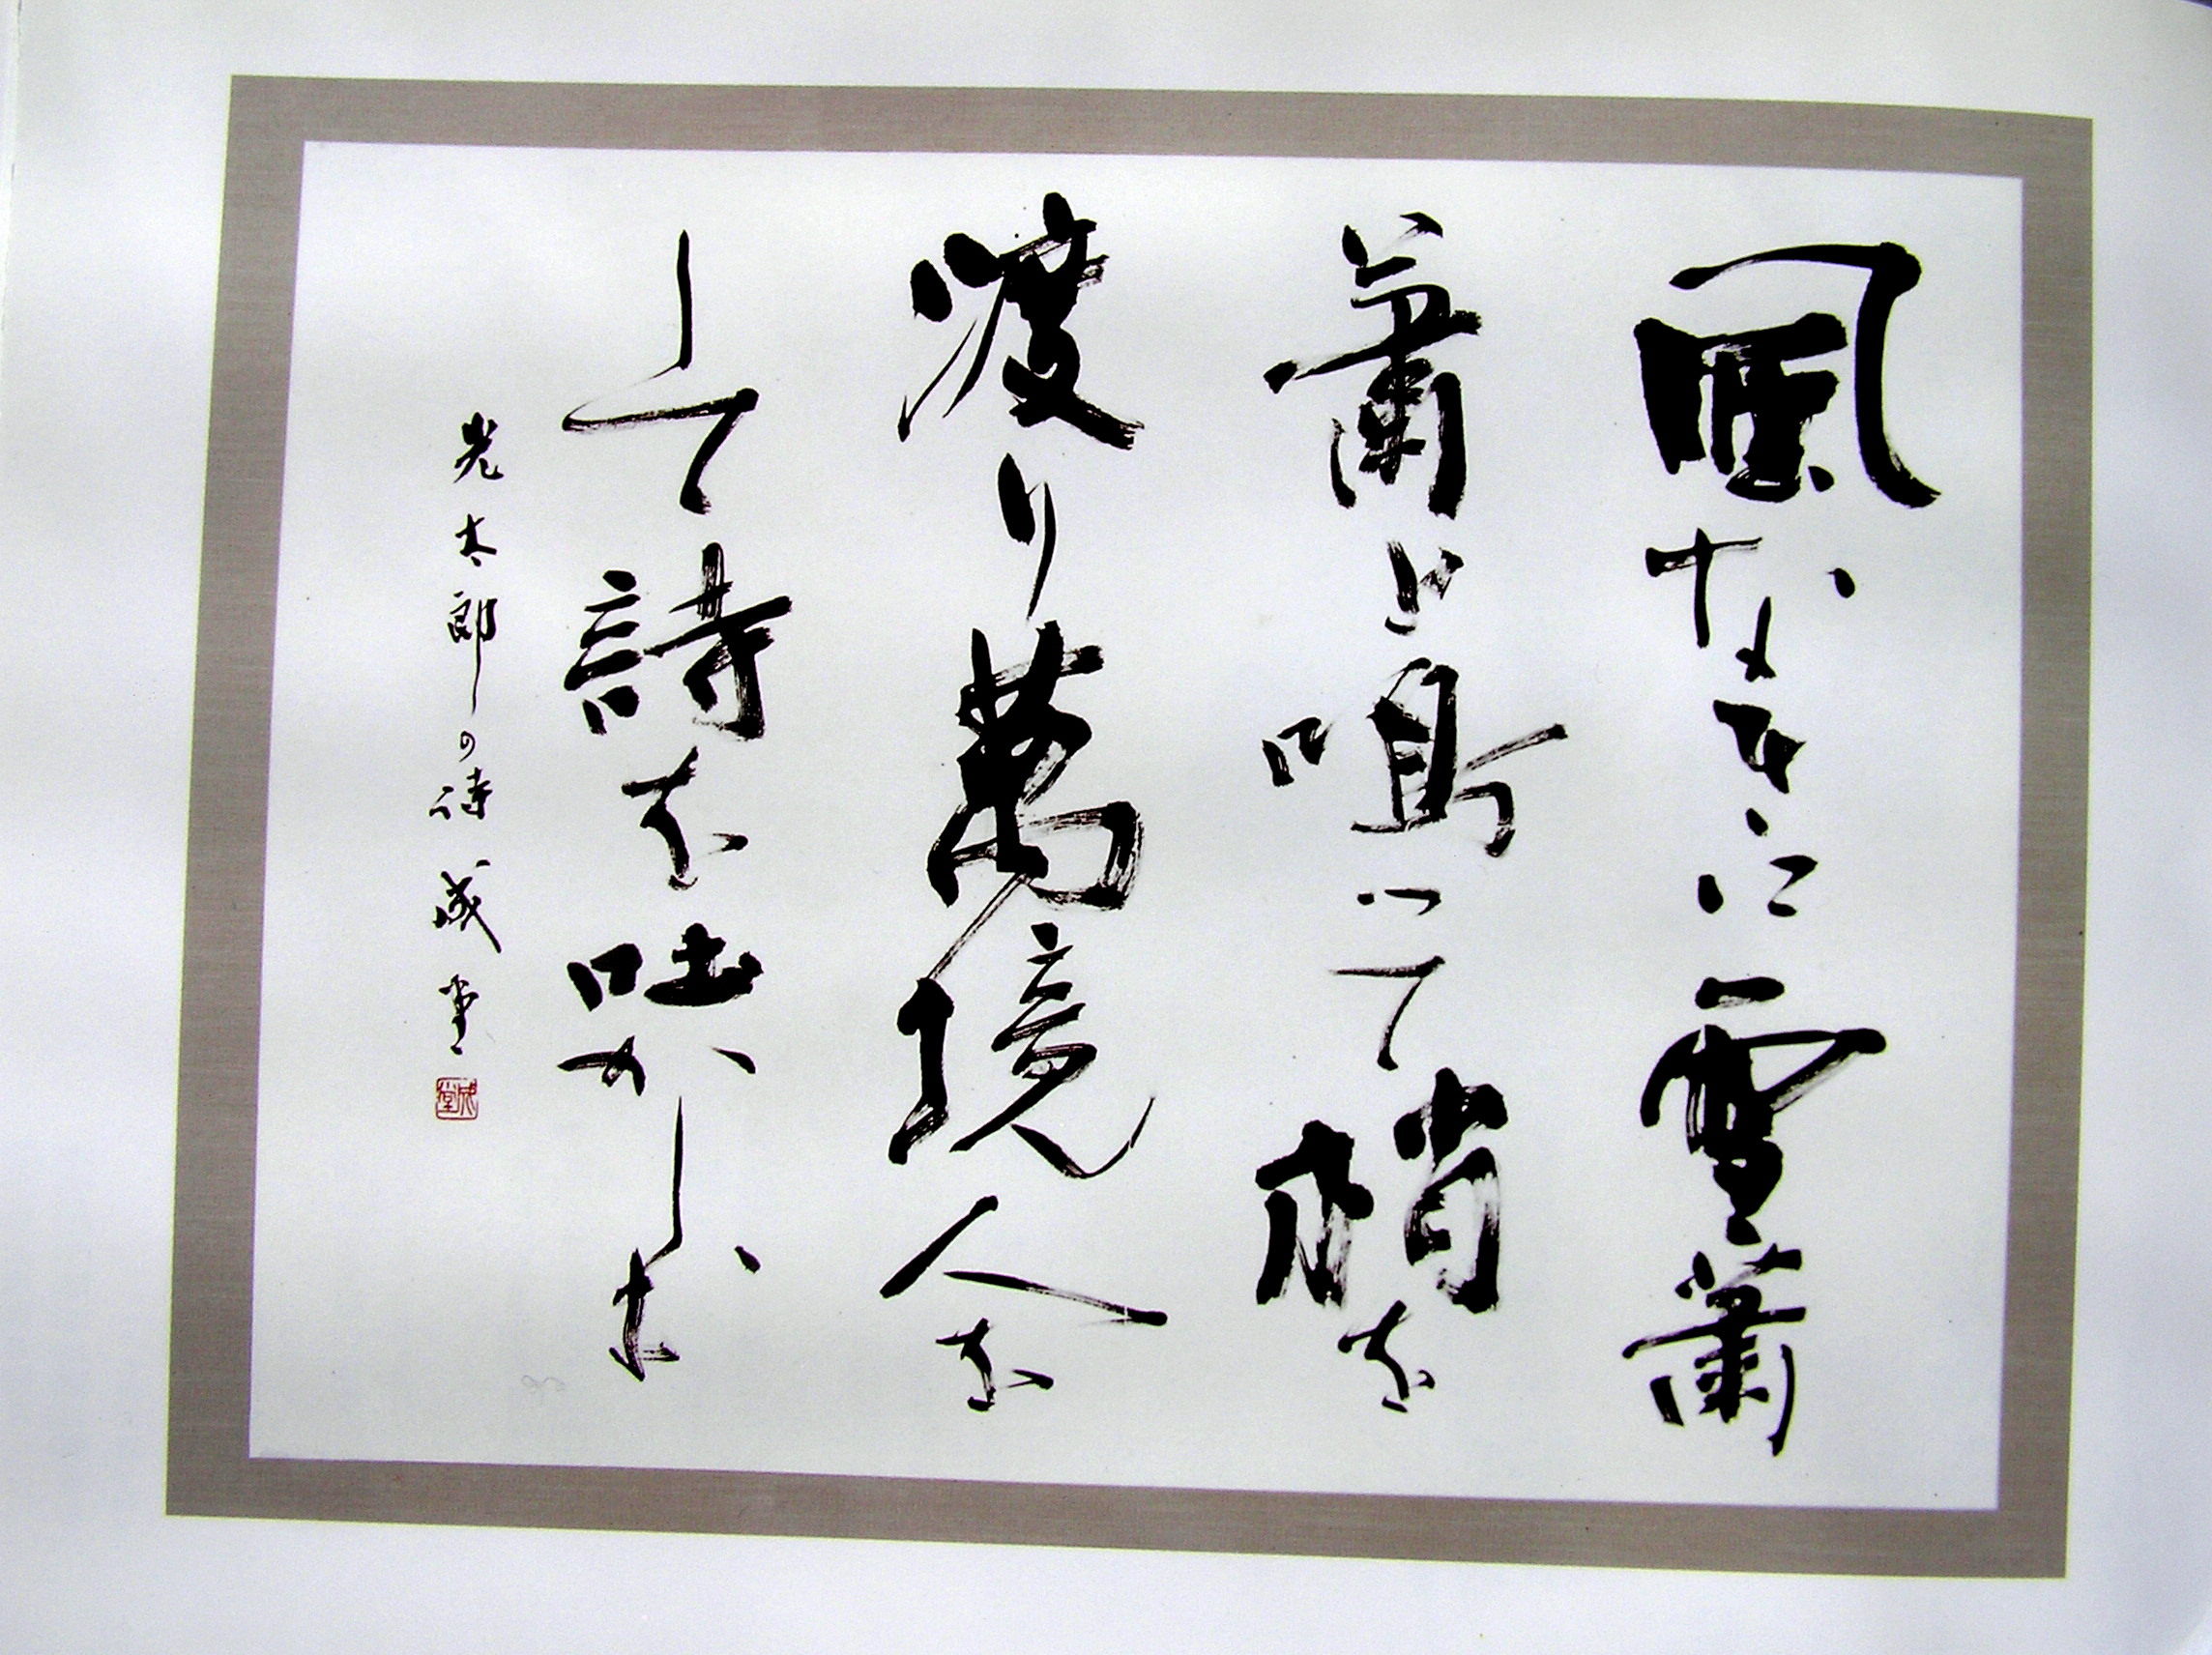 風なきに雪蕭
蕭と鳴つて梢を
渡り萬境人を
して詩を吐かしむ
光太郎の詩 成堂
成堂